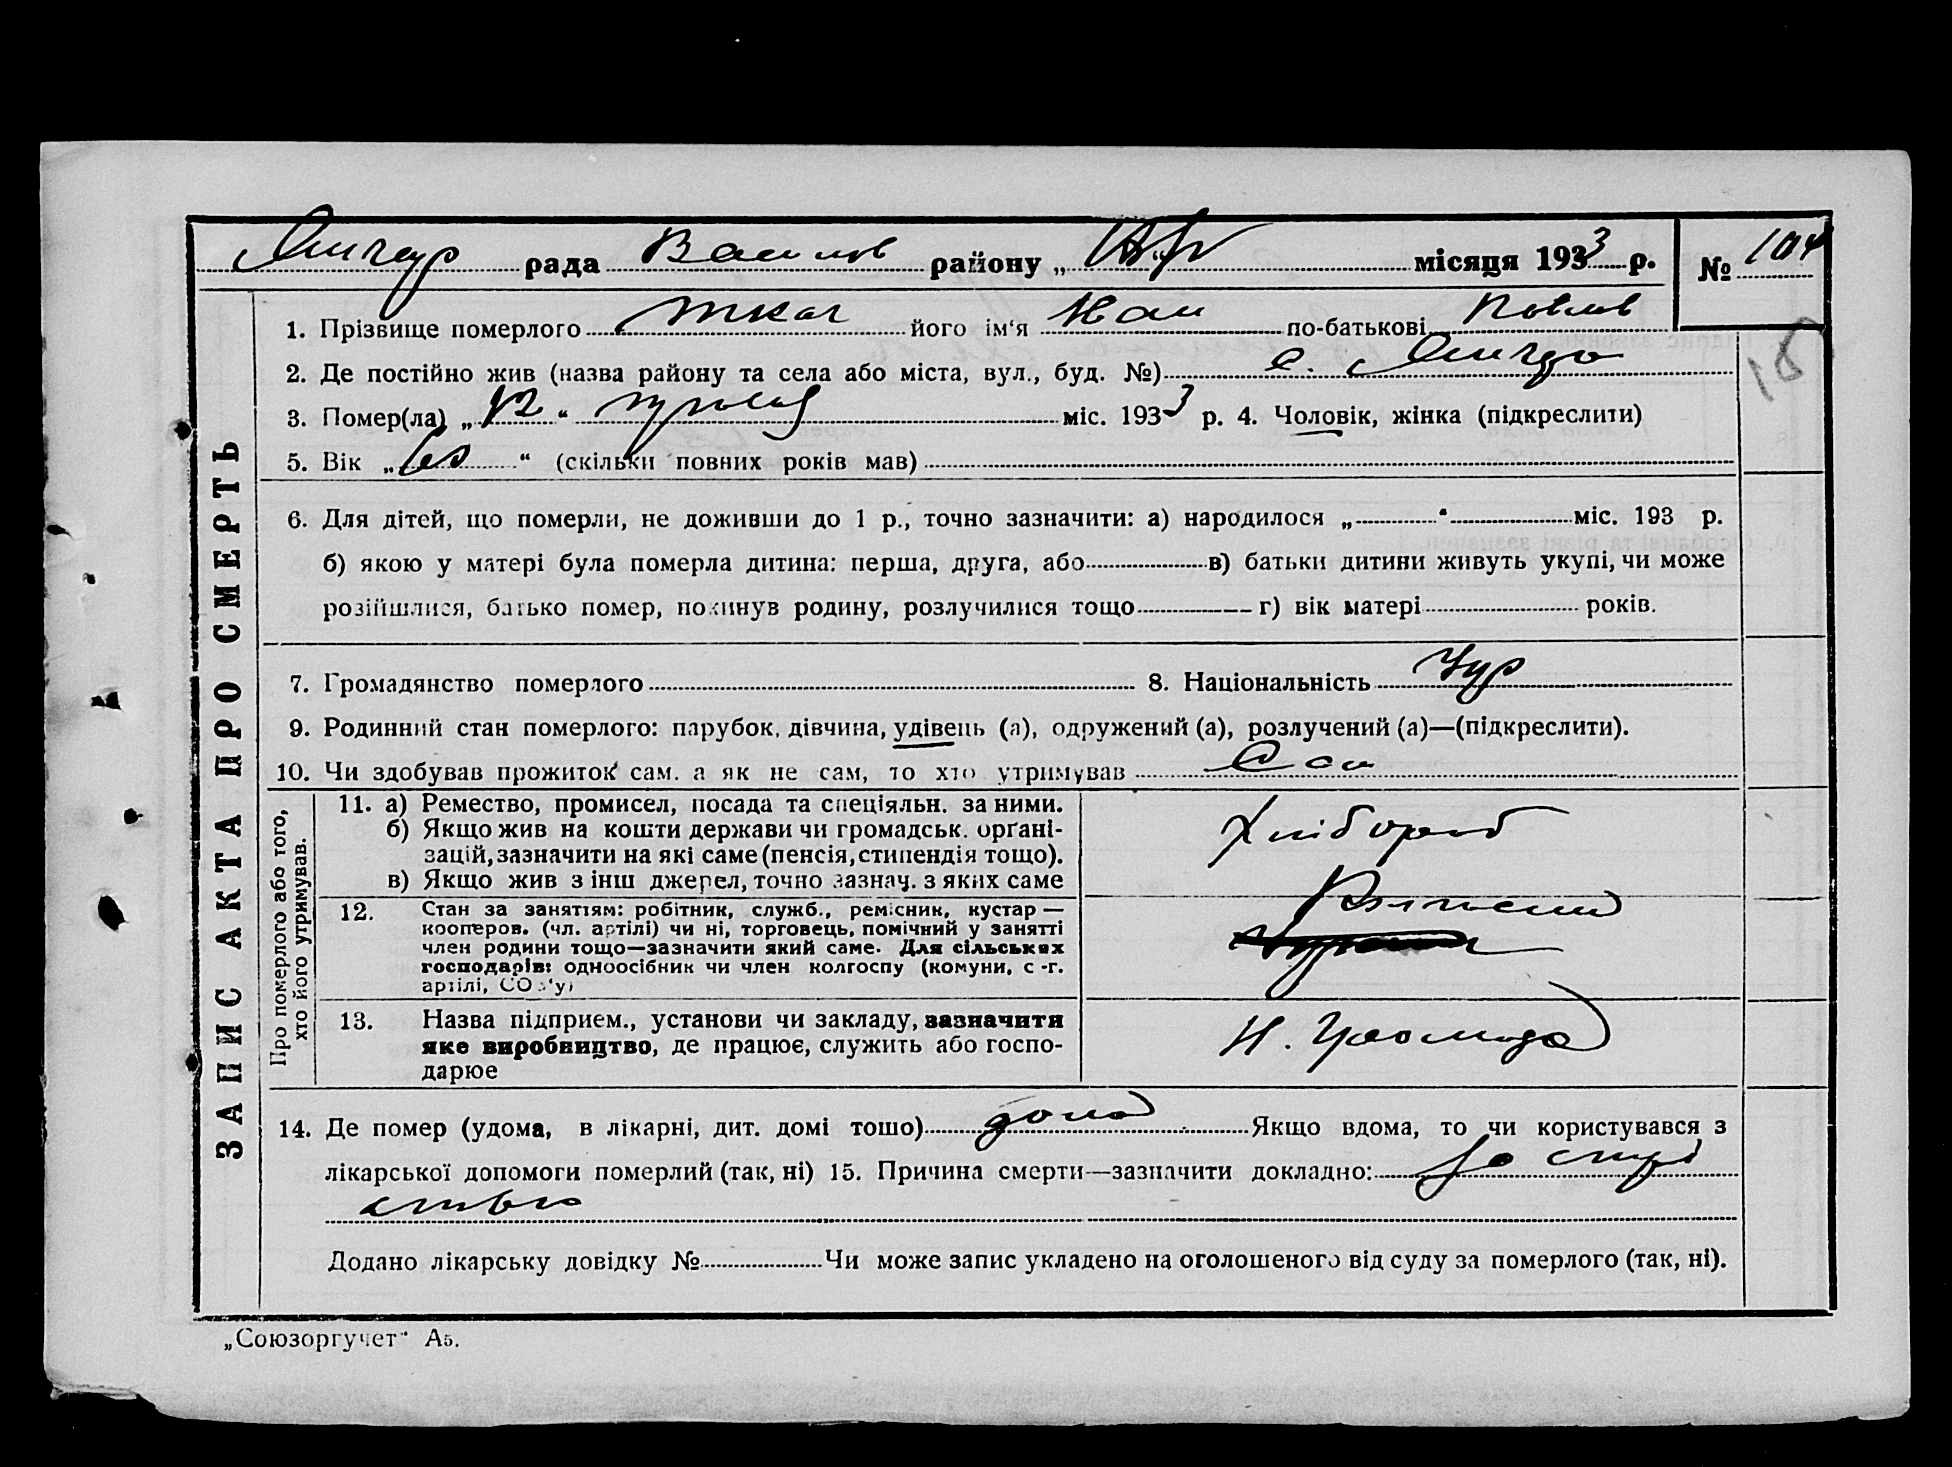 рада Васильків району „ “ місяця 1933 р. № 104
1. Прізвище померлого Ткач його ім‘я Іван по-батькові Павлов
2. Де постійно жив (назва району та села або міста, вул., буд. №) с.
3. Помер(ла) „12“ міс. 1933 р. 4. Чоловік, жінка (підкреслити)
5. Вік „ “ (скільки повних років мав)
6. Для дітей, що померли, не доживши до 1 р., точно зазначити: а) народилося „ “ міс. 193 р.
б) якою у матері була померла дитина: перша, друга, або в) батьки дитини живуть укупі, чи може
розійшлися, батько помер, покинув родину, розлучилися тощо г) вік матері років.
7. Громадянство померлого 8. Національність Укр
9. Родинний стан померлого: парубок, дівчина, удівець (а), одружений (а), розлучений (а)—(підкреслити).
10. Чи здобував прожиток сам, а як не сам, то хто утримував Сам
ЗАПИС АКТА ПРО СМЕРТЬ
Про померлого або того, хто його утримував.
11. а) Ремество, промисел, посада та спеціяльн. за ними.
б) Якщо жив на кошти держави чи громадськ. орґані-
зацій, зазначити на які саме (пенсія, стипендія тощо).
в) Якщо жив з інш джерел, точно зазнач. з яких саме
Хлібороб
12. Стан за заняттям: робітник, служб., ремісник, кустар —
кооперов. (чл. артілі) чи ні, торговець, помічний у занятті
член родини тощо—зазначити який саме. Для сільських
господарів: одноосібник чи член колгоспу (комуни, с.-г.
артілі, СОЗ'у)
13. Назва підприєм., установи чи закладу, зазначити
яке виробництво, де працює, служить або госпо-
дарюе
14. Де помер (удома, в лікарні, дит. домі тошо) дома Якщо вдома, то чи користувався з
лікарської допомоги померлий (так, ні) 15. Причина смерти—зазначити докладно:
Додано лікарську довідку № Чи може запис укладено на оголошеного від суду за померлого (так, ні).
„Союзоргучет“ А5.